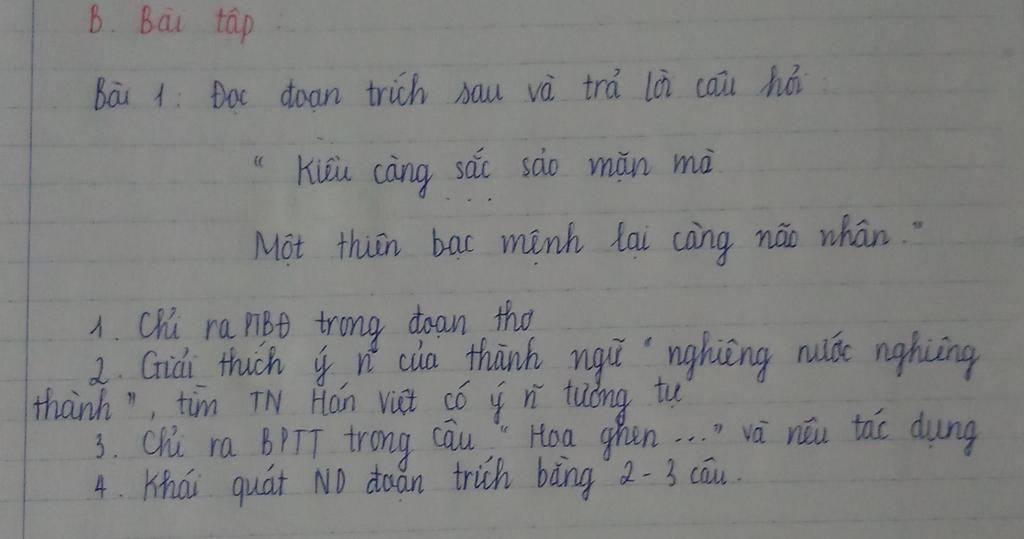 B. Bài tập :
Bài 1: Đọc đoạn trích sau và trả lời câu hỏi :
" Kiều càng sắc sảo mặn mà
...
Một thiên bạc mệnh lại càng não nhân."
1. Chỉ ra PTBĐ trong đoạn thơ
2. Giải thích ý n̄ của thành ngữ " nghiêng nước nghiêng
thành", tìm TN Hán Việt có ý n̄ tương tự
3. Chỉ ra BPTT trong câu " Hoa ghen ..." và nêu tác dụng
4. Khái quát ND đoạn trích bằng 2-3 câu.